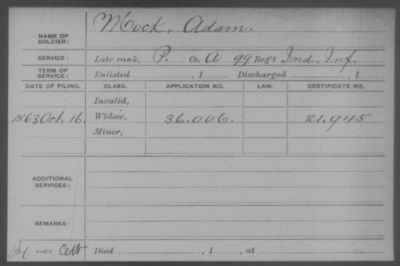 Mock, Adam.
NAME OF SOLDIER:
SERVICE: Late rank, P. Co. A. 99 Reg't Ind. Inf.
TERM OF SERVICE: Enlisted , 1 Discharged , 1
DATE OF FILING. CLASS. APPLICATION NO. LAW. CERTIFICATE NO.
Invalid,
1863 Oct. 16. Widow, 36.006. 21.945
Minor,
ADDITIONAL SERVICES:
REMARKS:
Died , 1 , at